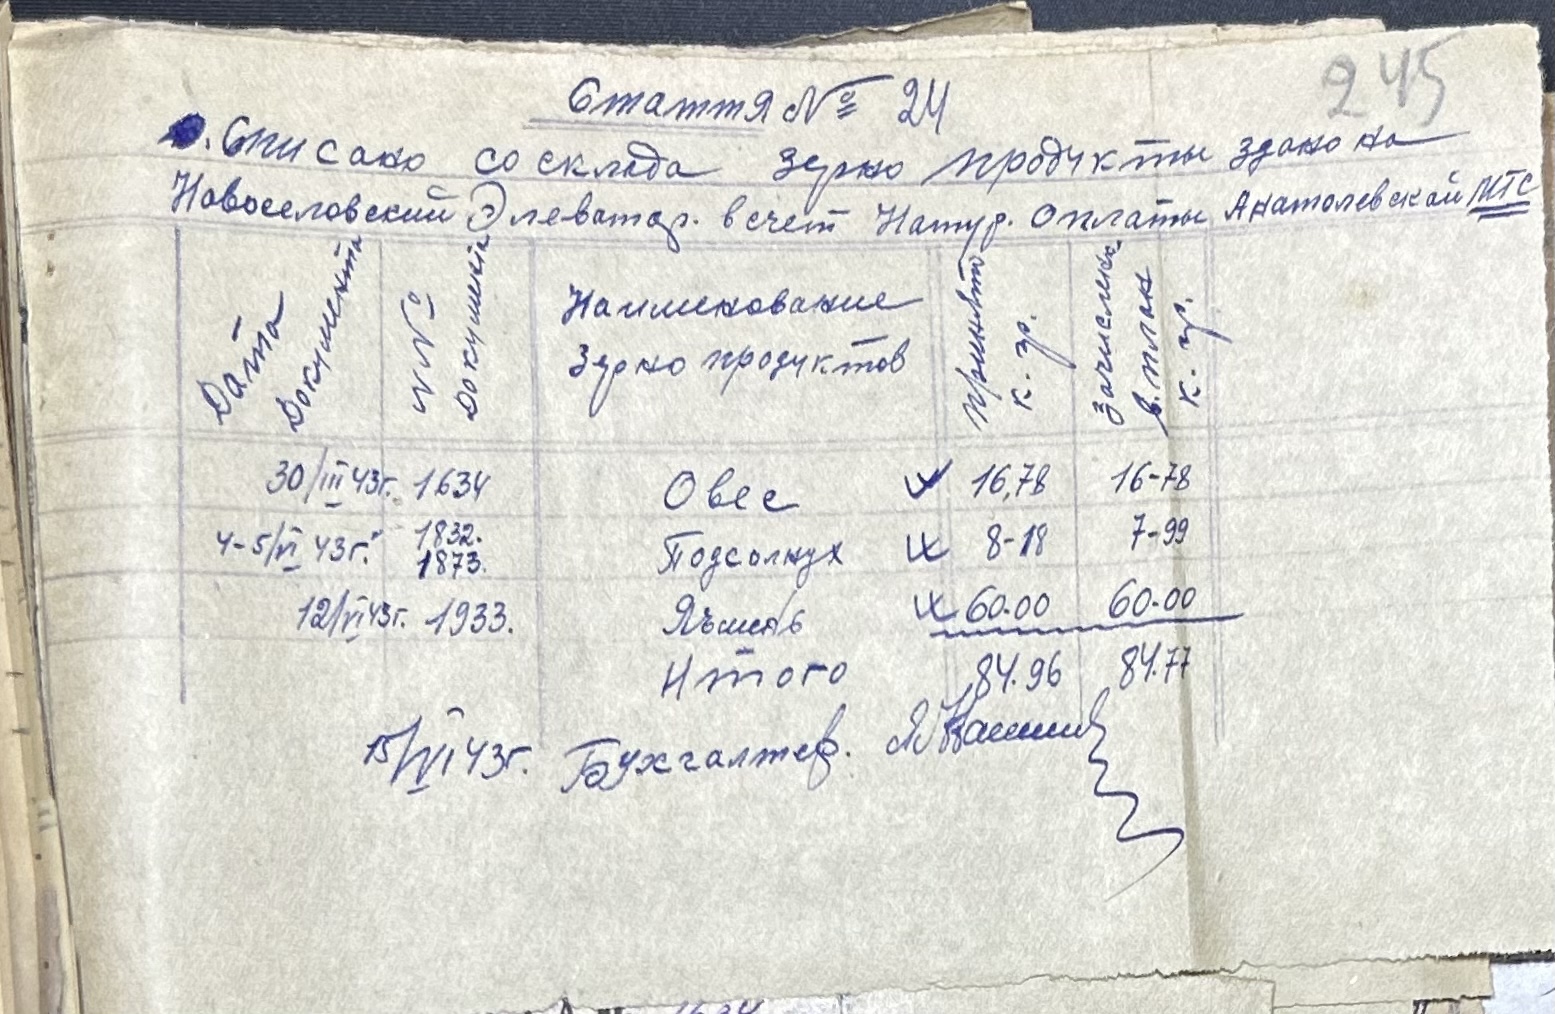 245
Стаття № 24
Списано со склада зерно продукты здано на
Новоселовский Элеватор. в счет Натур. оплаты Анатолевской МТС
Дата Документа | №№ Документа | Наименование Зерно продуктов | Принято к. гр. | Зачислено в. план к. гр.
30/III 43г. 1634 Овес 16,78 16-78
4-5/VI 43г. 1832. 1873. Подсолнух 8-18 7-99
12/VI 43г. 1933. Яъмень 60.00 60.00
Итого 84.96 84.77
15/VI 43г. Бухгалтер.